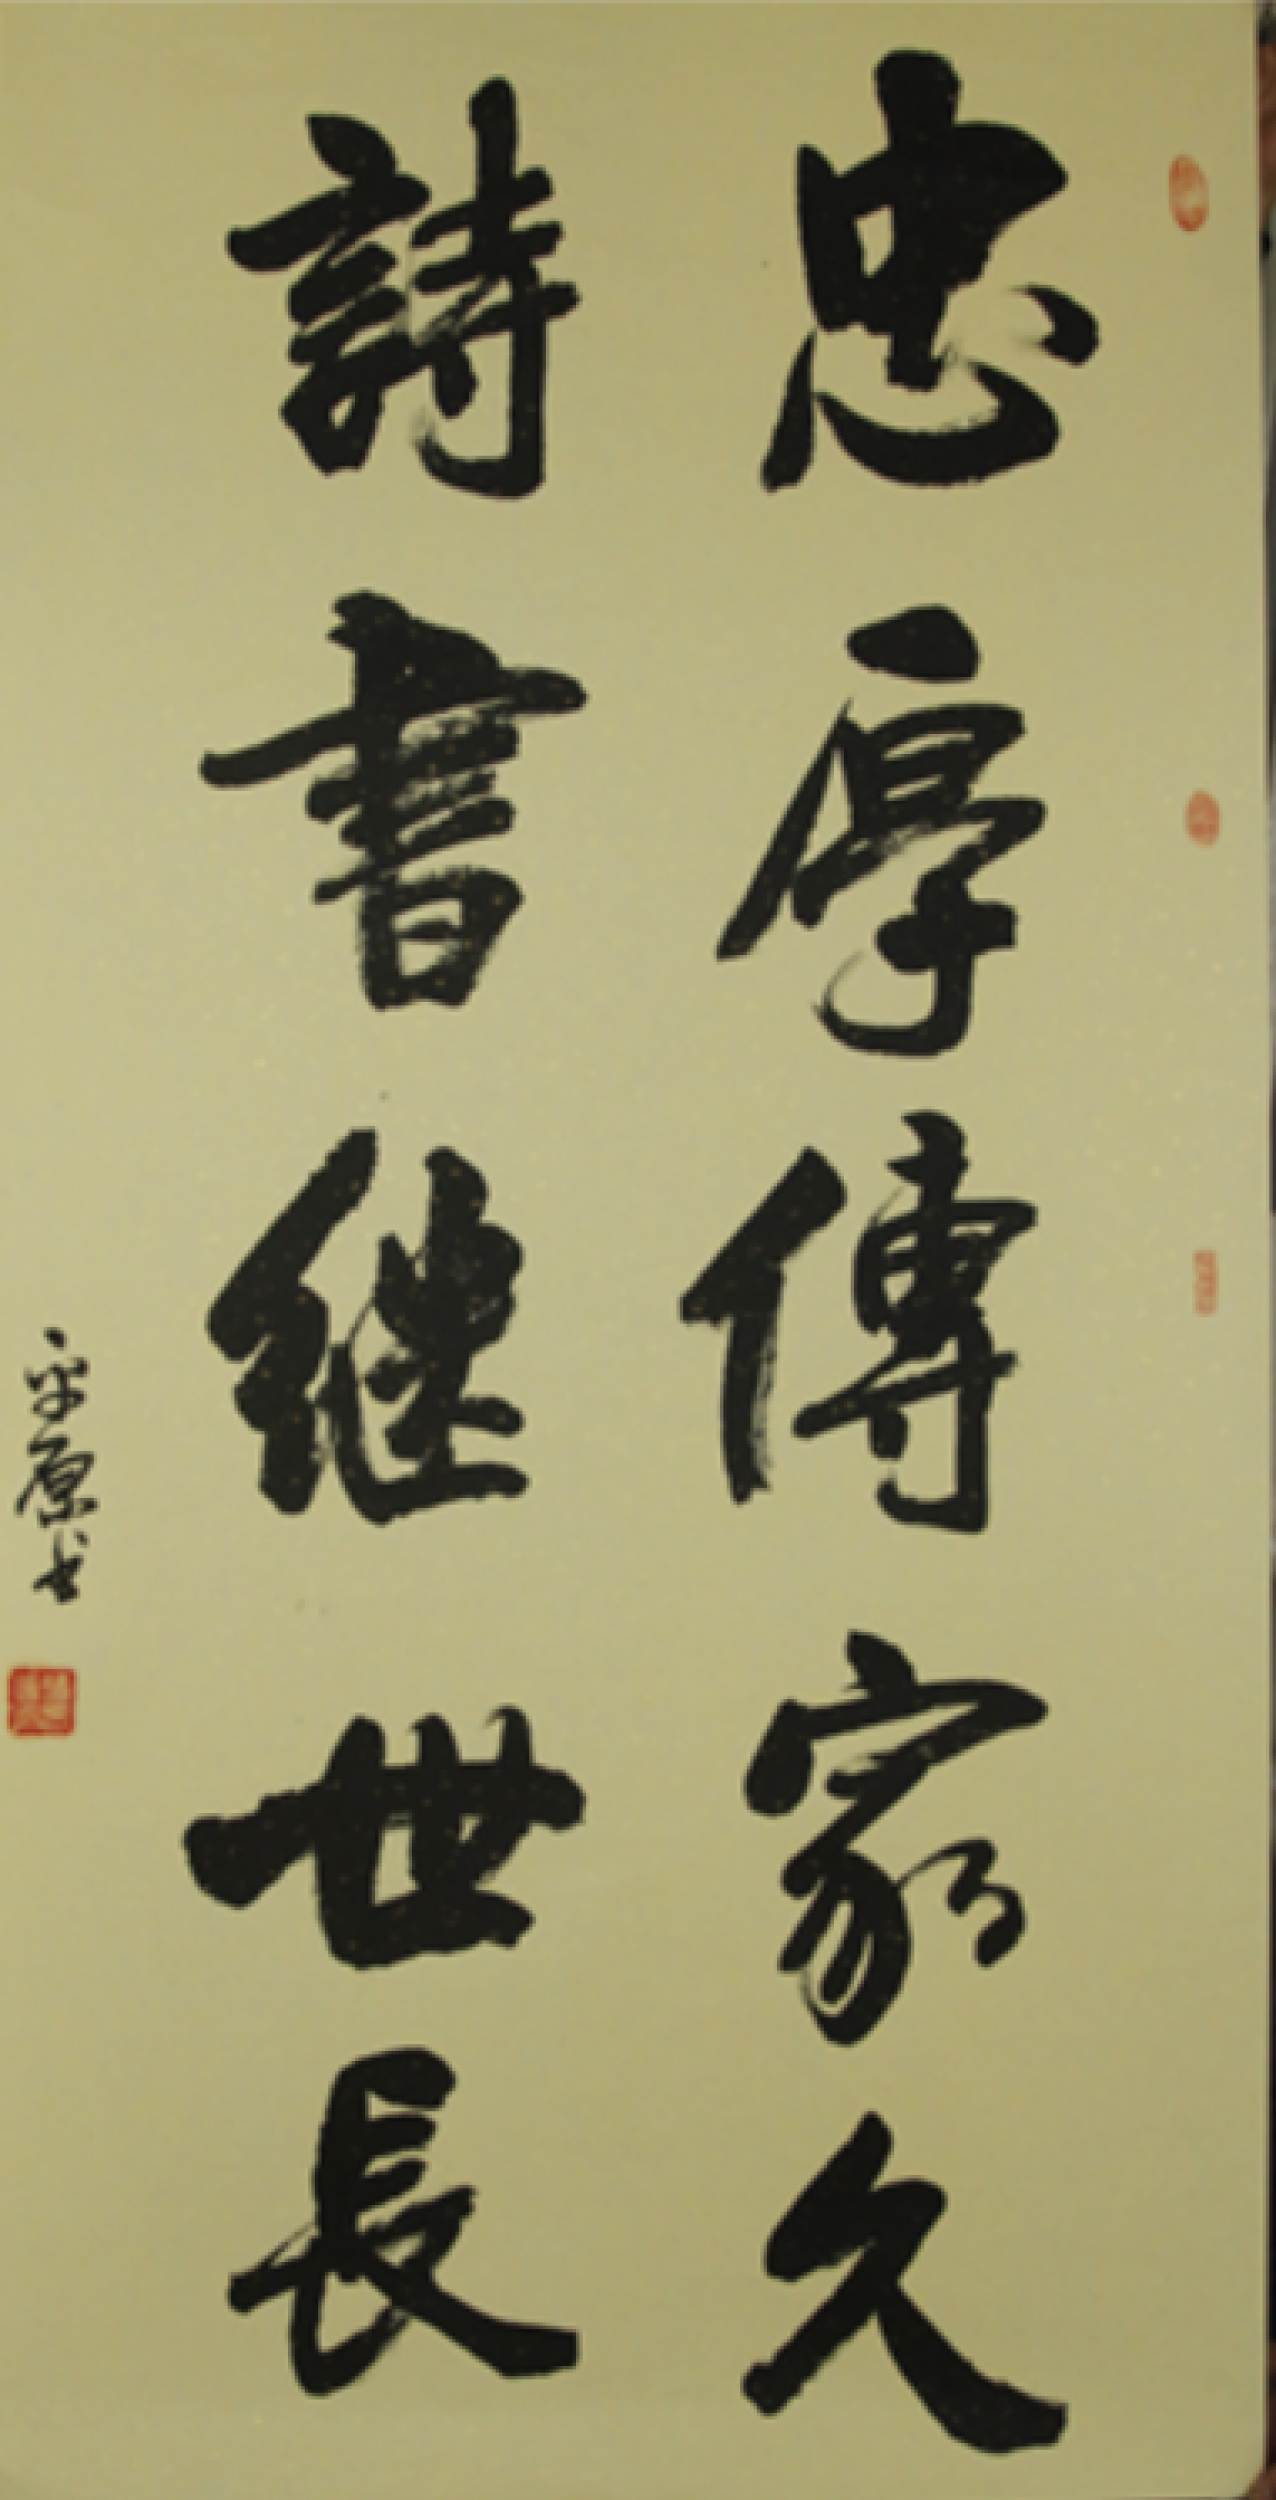 忠厚傳家久
詩書继世長
平原书